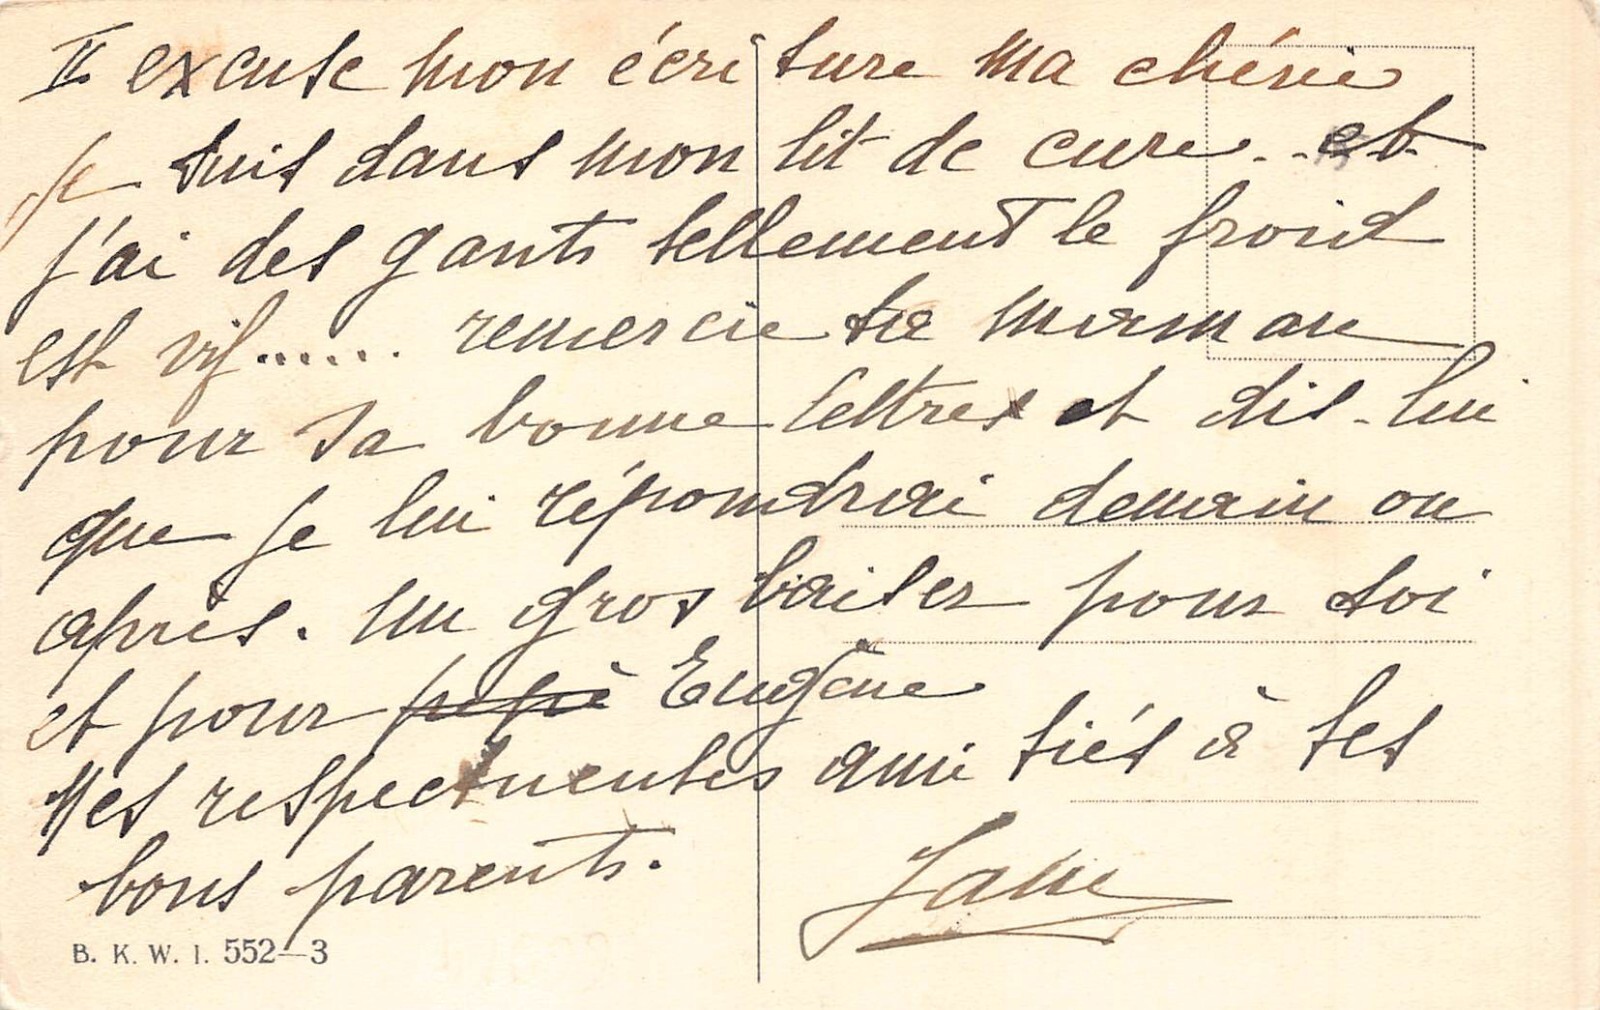 II excuse mon écriture ma chérie
je suis dans mon lit de cure.. et
j'ai des gants tellement le froid
est vif...... remercie ta maman
pour sa bonne lettre et dis-lui
que je lui répondrai demain ou
après. Un gros baiser pour toi
et pour pépé Eugène
Mes respectueuses amitiés à tes
bons parents.
Jane
B. K. W. I. 552—3